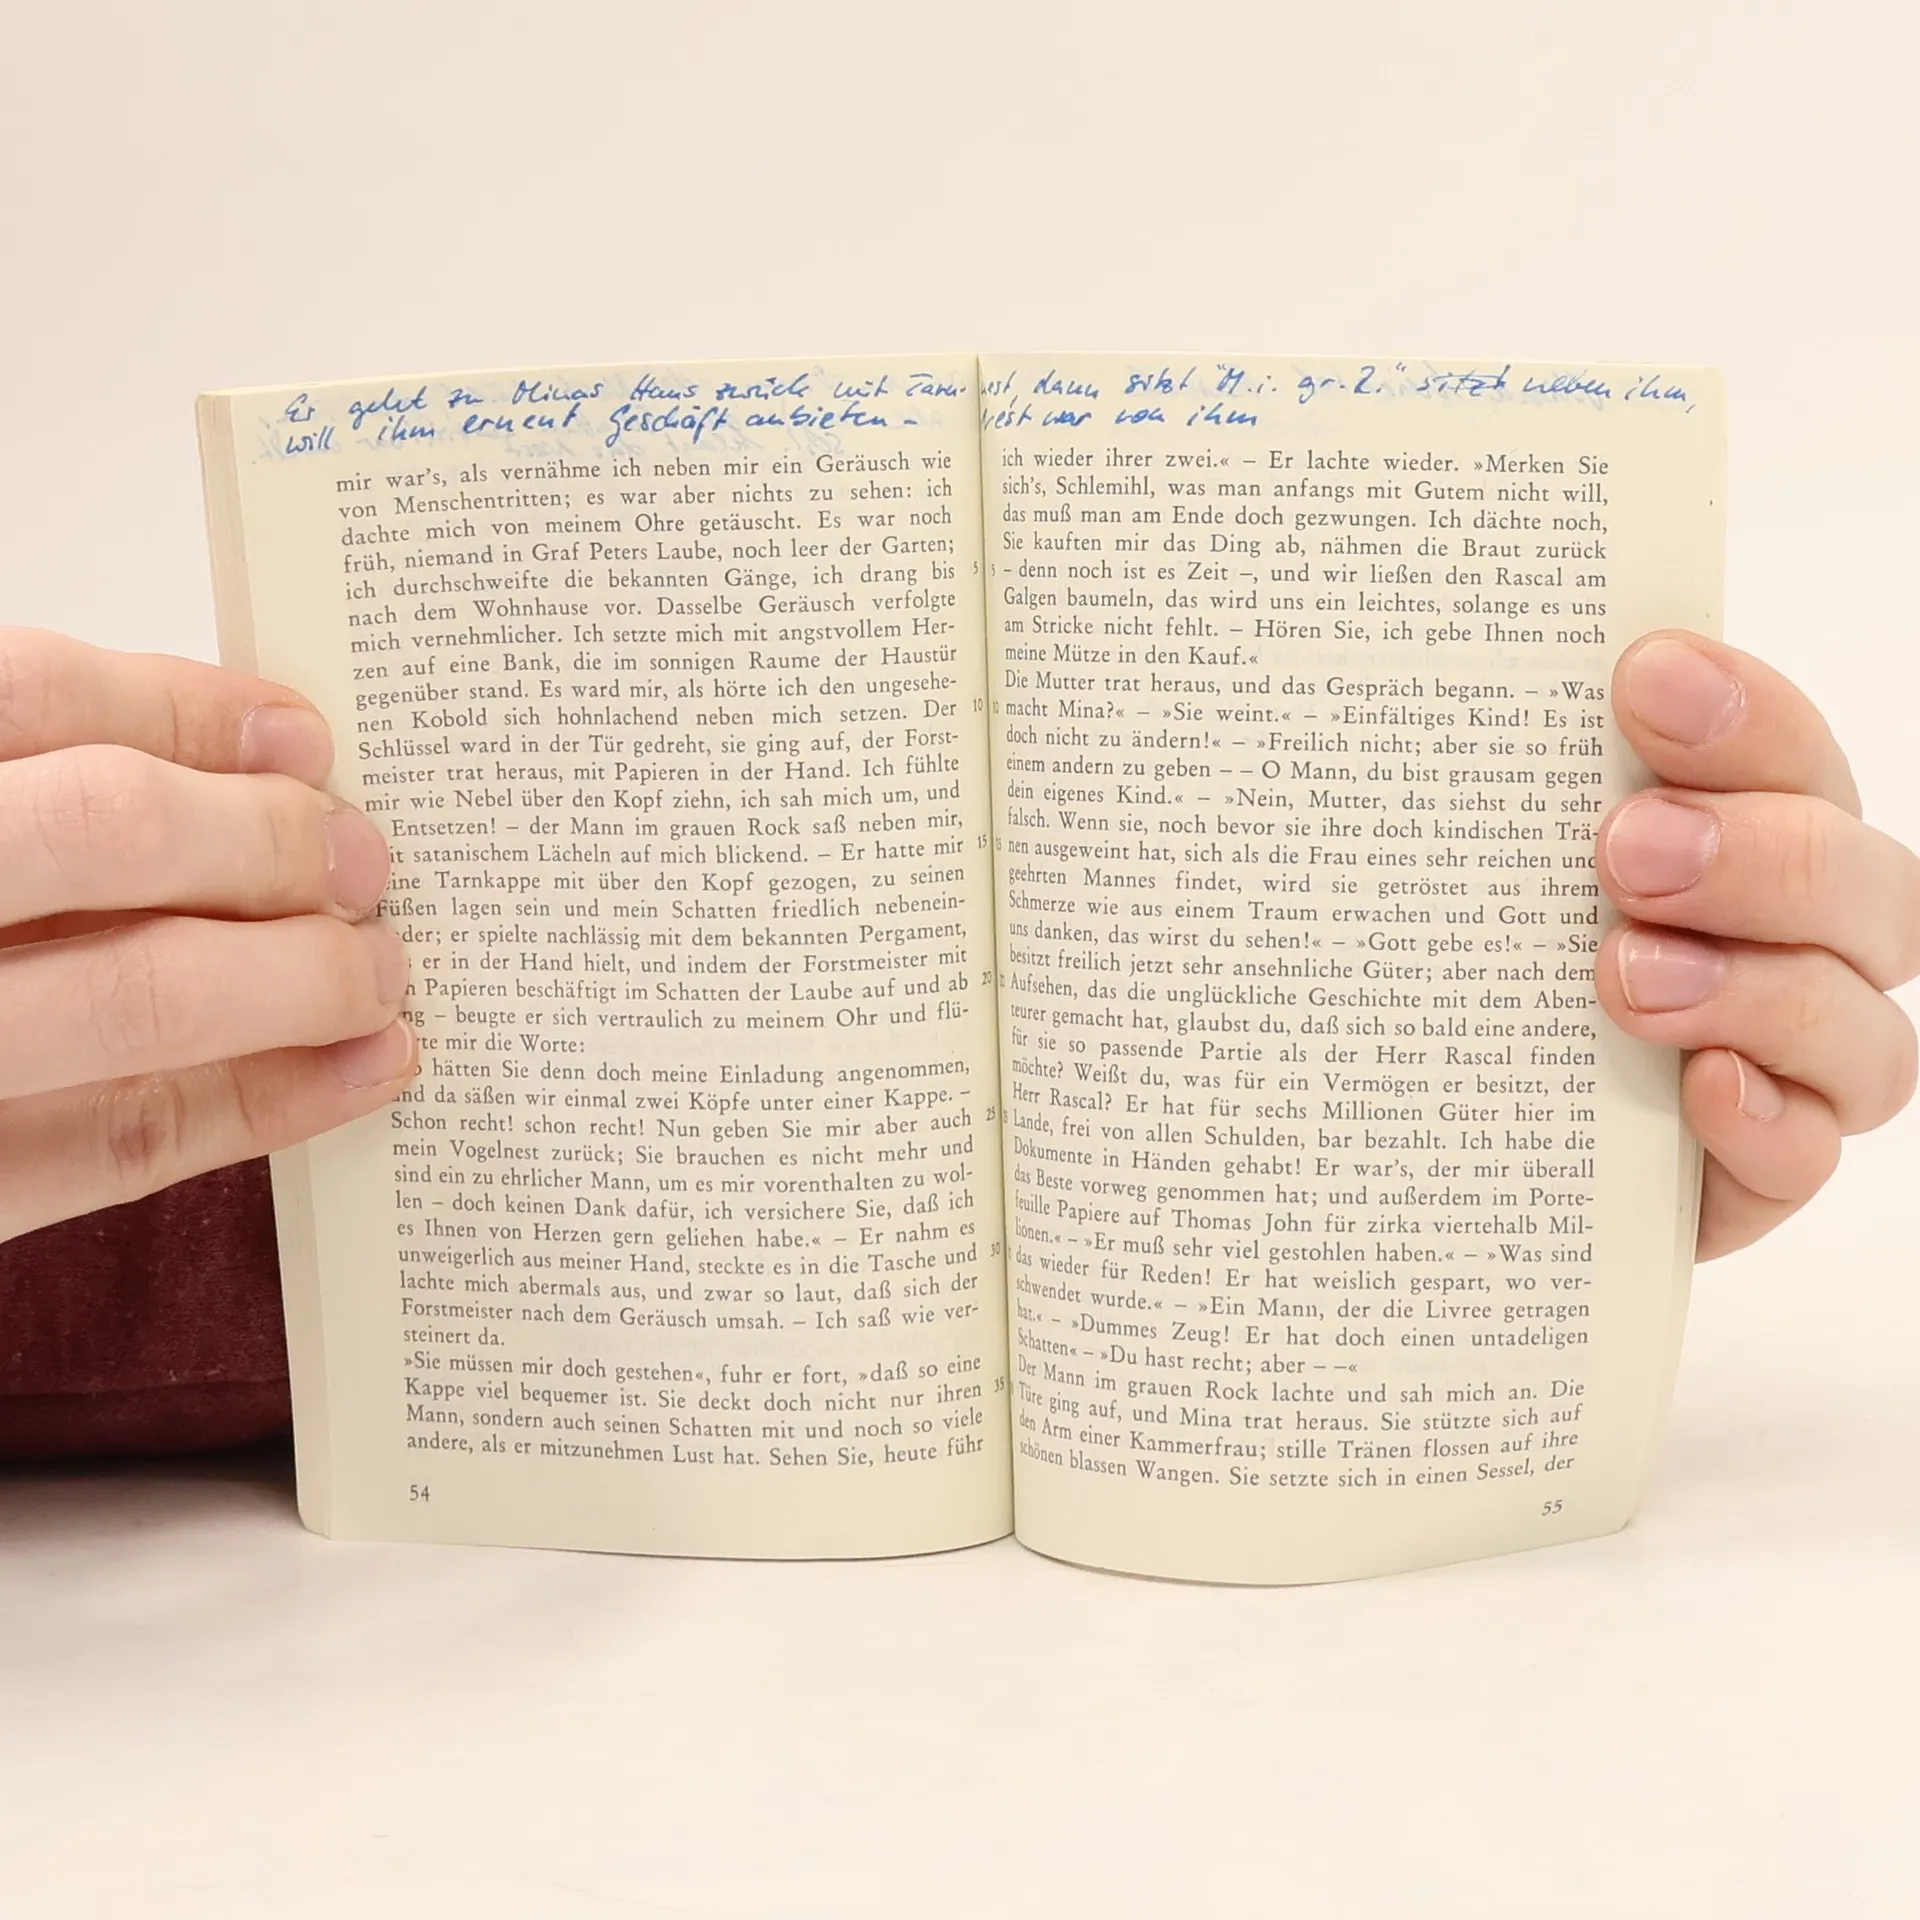 Er geht zu Minas Haus zurück mit Tarn-
will ihm erneut Geschäft anbieten -
mir war's, als vernähme ich neben mir ein Geräusch wie
von Menschentritten; es war aber nichts zu sehen: ich
dachte mich von meinem Ohre getäuscht. Es war noch
früh, niemand in Graf Peters Laube, noch leer der Garten;
ich durchschweifte die bekannten Gänge, ich drang bis 5
nach dem Wohnhause vor. Dasselbe Geräusch verfolgte
mich vernehmlicher. Ich setzte mich mit angstvollem Her-
zen auf eine Bank, die im sonnigen Raume der Haustür
gegenüber stand. Es ward mir, als hörte ich den ungesehe-
nen Kobold sich hohnlachend neben mich setzen. Der 10
Schlüssel ward in der Tür gedreht, sie ging auf, der Forst-
meister trat heraus, mit Papieren in der Hand. Ich fühlte
mir wie Nebel über den Kopf ziehn, ich sah mich um, und
Entsetzen! – der Mann im grauen Rock saß neben mir,
it satanischem Lächeln auf mich blickend. – Er hatte mir 15
ine Tarnkappe mit über den Kopf gezogen, zu seinen
Füßen lagen sein und mein Schatten friedlich nebenein-
der; er spielte nachlässig mit dem bekannten Pergament,
er in der Hand hielt, und indem der Forstmeister mit
n Papieren beschäftigt im Schatten der Laube auf und ab 20
ng – beugte er sich vertraulich zu meinem Ohr und flü-
rte mir die Worte:
hätten Sie denn doch meine Einladung angenommen,
und da säßen wir einmal zwei Köpfe unter einer Kappe. –
Schon recht! schon recht! Nun geben Sie mir aber auch 25
mein Vogelnest zurück; Sie brauchen es nicht mehr und
sind ein zu ehrlicher Mann, um es mir vorenthalten zu wol-
len – doch keinen Dank dafür, ich versichere Sie, daß ich
es Ihnen von Herzen gern geliehen habe.« – Er nahm es
unweigerlich aus meiner Hand, steckte es in die Tasche und 30
lachte mich abermals aus, und zwar so laut, daß sich der
Forstmeister nach dem Geräusch umsah. – Ich saß wie ver-
steinert da.
»Sie müssen mir doch gestehen«, fuhr er fort, »daß so eine
Kappe viel bequemer ist. Sie deckt doch nicht nur ihren 35
Mann, sondern auch seinen Schatten mit und noch so viele
andere, als er mitzunehmen Lust hat. Sehen Sie, heute führ
54
nest, dann sitzt "M.i. gr. R." sitzt neben ihm,
nest war von ihm
ich wieder ihrer zwei.« – Er lachte wieder. »Merken Sie
sich's, Schlemihl, was man anfangs mit Gutem nicht will,
das muß man am Ende doch gezwungen. Ich dächte noch,
Sie kauften mir das Ding ab, nähmen die Braut zurück
5 – denn noch ist es Zeit –, und wir ließen den Rascal am
Galgen baumeln, das wird uns ein leichtes, solange es uns
am Stricke nicht fehlt. – Hören Sie, ich gebe Ihnen noch
meine Mütze in den Kauf.«
Die Mutter trat heraus, und das Gespräch begann. – »Was
10 macht Mina?« – »Sie weint.« – »Einfältiges Kind! Es ist
doch nicht zu ändern!« – »Freilich nicht; aber sie so früh
einem andern zu geben – – O Mann, du bist grausam gegen
dein eigenes Kind.« – »Nein, Mutter, das siehst du sehr
falsch. Wenn sie, noch bevor sie ihre doch kindischen Trä-
15 nen ausgeweint hat, sich als die Frau eines sehr reichen und
geehrten Mannes findet, wird sie getröstet aus ihrem
Schmerze wie aus einem Traum erwachen und Gott und
uns danken, das wirst du sehen!« – »Gott gebe es!« – »Sie
besitzt freilich jetzt sehr ansehnliche Güter; aber nach dem
Aufsehen, das die unglückliche Geschichte mit dem Aben-
teurer gemacht hat, glaubst du, daß sich so bald eine andere,
für sie so passende Partie als der Herr Rascal finden
möchte? Weißt du, was für ein Vermögen er besitzt, der
Herr Rascal? Er hat für sechs Millionen Güter hier im
Lande, frei von allen Schulden, bar bezahlt. Ich habe die
Dokumente in Händen gehabt! Er war's, der mir überall
das Beste vorweg genommen hat; und außerdem im Porte-
feuille Papiere auf Thomas John für zirka viertehalb Mil-
lionen.« – »Er muß sehr viel gestohlen haben.« – »Was sind
das wieder für Reden! Er hat weislich gespart, wo ver-
schwendet wurde.« – »Ein Mann, der die Livree getragen
hat.« – »Dummes Zeug! Er hat doch einen untadeligen
Schatten« – »Du hast recht; aber – –«
Der Mann im grauen Rock lachte und sah mich an. Die
Türe ging auf, und Mina trat heraus. Sie stützte sich auf
den Arm einer Kammerfrau; stille Tränen flossen auf ihre
schönen blassen Wangen. Sie setzte sich in einen Sessel, der
55